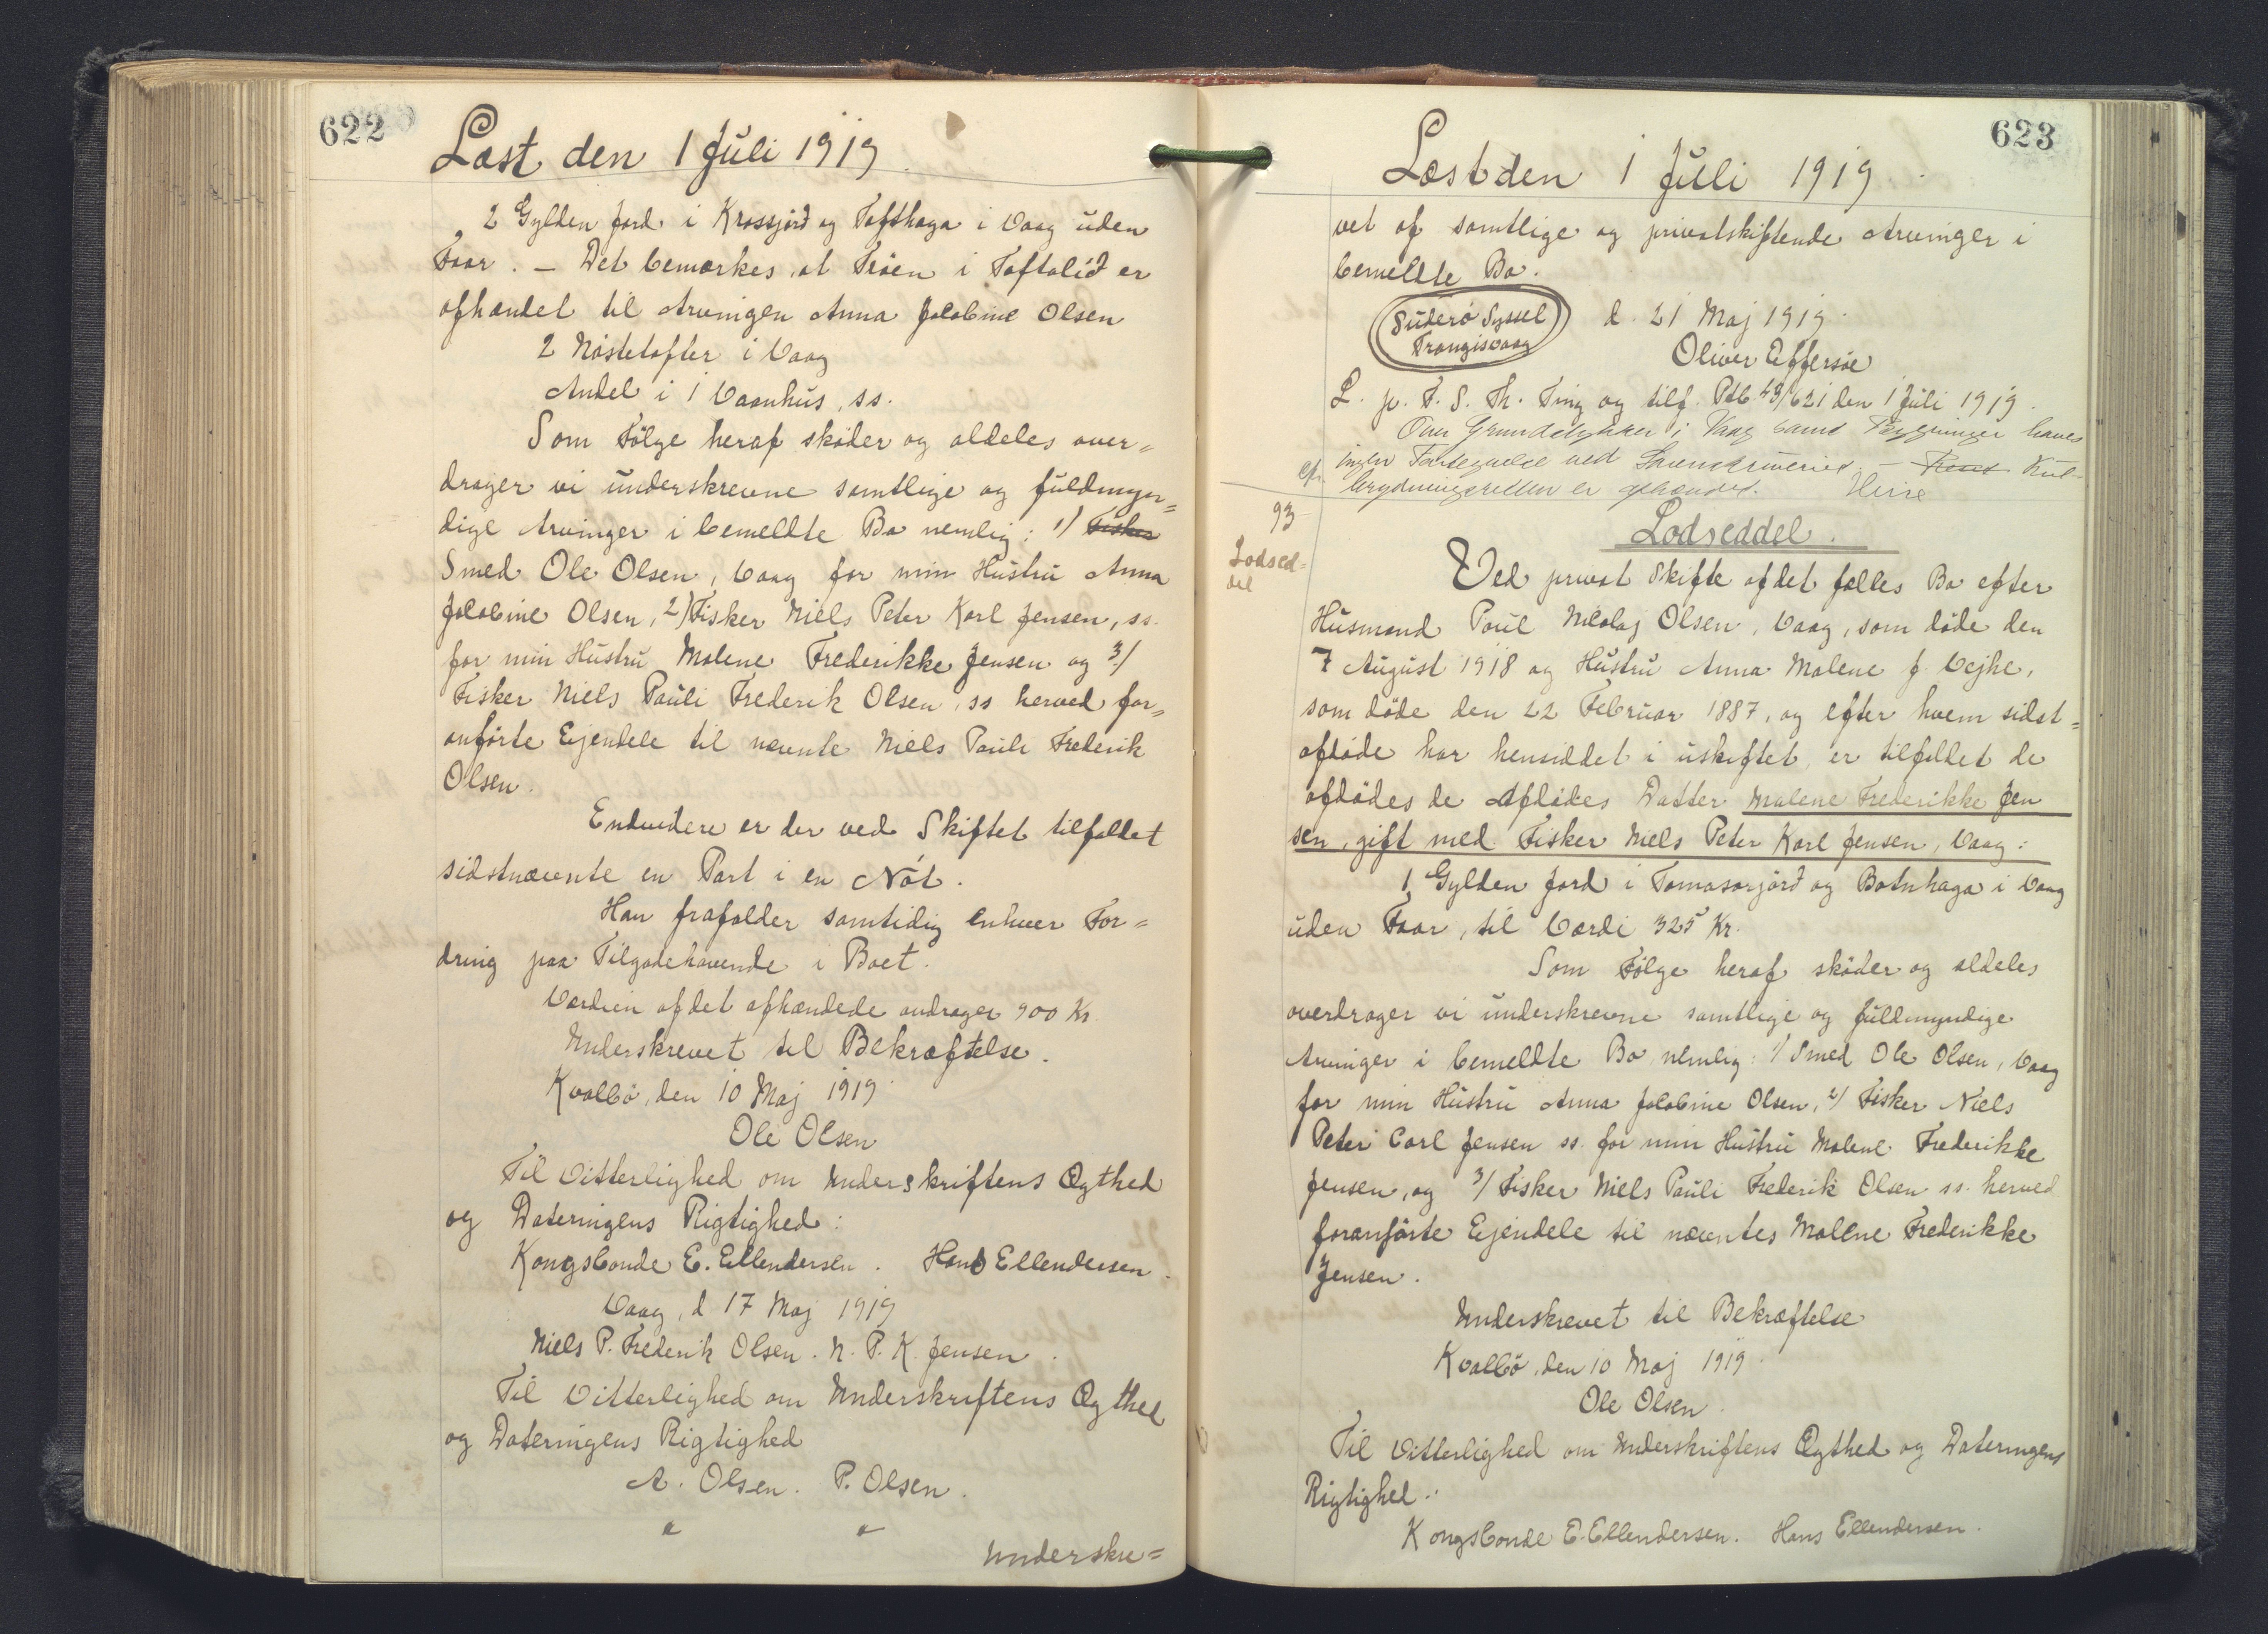 622
Læst den 1 Juli 1919.
2 Gylden Jord i Krossjørð og Tofthaga i Vaag uden
Faar. – Det bemærkes, at Trøen i Toftalið er
afhændet til Arvingen Anna Jakobine Olsen
2 Nøstetofter i Vaag
Andel i 1 Vaanhus, ss.
Som Følge heraf skøder og aldeles over=
drager vi underskrevne samtlige og fuldmyn=
dige Arvinger i bemeldte Bo nemlig: 1) Fisker
Smed Ole Olsen, Vaag for min Hustru Anna
Jakobine Olsen, 2) Fisker Niels Peter Karl Jensen, ss.
for min Hustru Malene Frederikke Jensen og 3/
Fisker Niels Pauli Frederik Olsen, ss herved for=
anførte Ejendele til nævnte Niels Pauli Frederik
Olsen.
Endvidere er der ved Skiftet tilfaldet
sidstnævnte en Part i en Nót.
Han frafalder samtidig enhver For=
dring paa Tilgodehavende i Boet.
Værdien af det afhændede andrager 900 Kr.
Underskrevet til Bekræftelse.
Kvalbø, den 10 Maj 1919.
Ole Olsen
Til Vitterlighed om Underskriftens Ægthed
og Dateringens Rigtighed:
Kongsbonde E. Ellendersen. Hans Ellendersen.
Vaag, d 17 Maj 1919
Niels P. Frederik Olsen. N. P. K. Jensen.
Til Vitterlighed om Underskriftens Ægthed
og Dateringens Rigtighed
A. Olsen. P. Olsen.
" "
Underskre=
623
Læst den 1 Juli 1919.
vet af samtlige og privatskiftende Arvinger i
bemeldte Bo.
Suderø Syssel
Trangisvaag
d. 21 Maj 1919.
Oliver Effersøe
L. p. F. S. Th. Ting og tilf. Ptb. 43/621 den 1 Juli 1919.
Over Grundstykker i Vaag samt Bygninger haves
ingen Fortegnelse ved Sorenskriveriet. – Kul-
brydningsretten er afhændet.
93
Lodsed=
del
Lodseddel.
Ved privat Skifte af det fælles Bo efter
Husmand Poul Nicolaj Olsen, Vaag, som døde den
7 August 1918 og Hustru Anna Malene f. Vejhe,
som døde den 22 Februar 1887, og efter hvem sidst=
afdøde har hensiddet i uskiftet, er tilfaldet de
afdødes de Afdødes Datter Malene Frederikke Jen
sen, gift med Fisker Niels Peter Karl Jensen, Vaag:
1 Gylden Jord i Tomasarjørð og Botnhaga i Vaag
uden Faar, til Værdi 325 Kr.
Som Følge heraf skøder og aldeles
overdrager vi underskrevne samtlige og fuldmyndige
Arvinger i bemeldte Bo, nemlig: 1/ Smed Ole Olsen, Vaag
for min Hustru Anna Jakobine Olsen, 2/ Fisker Niels
Peter Carl Jensen ss. for min Hustru Malene Frederikke
Jensen, og 3/ Fisker Niels Pauli Frederik Olsen ss. herved
foranførte Ejendele til nævntes Malene Frederikke
Jensen.
Underskrevet til Bekræftelse
Kvalbø, den 10 Maj 1919.
Ole Olsen.
Til Vitterlighed om Underskriftens Ægthed og Dateringens
Rigtighed.:
Kongsbonde E. Ellendersen. Hans Ellendersen.